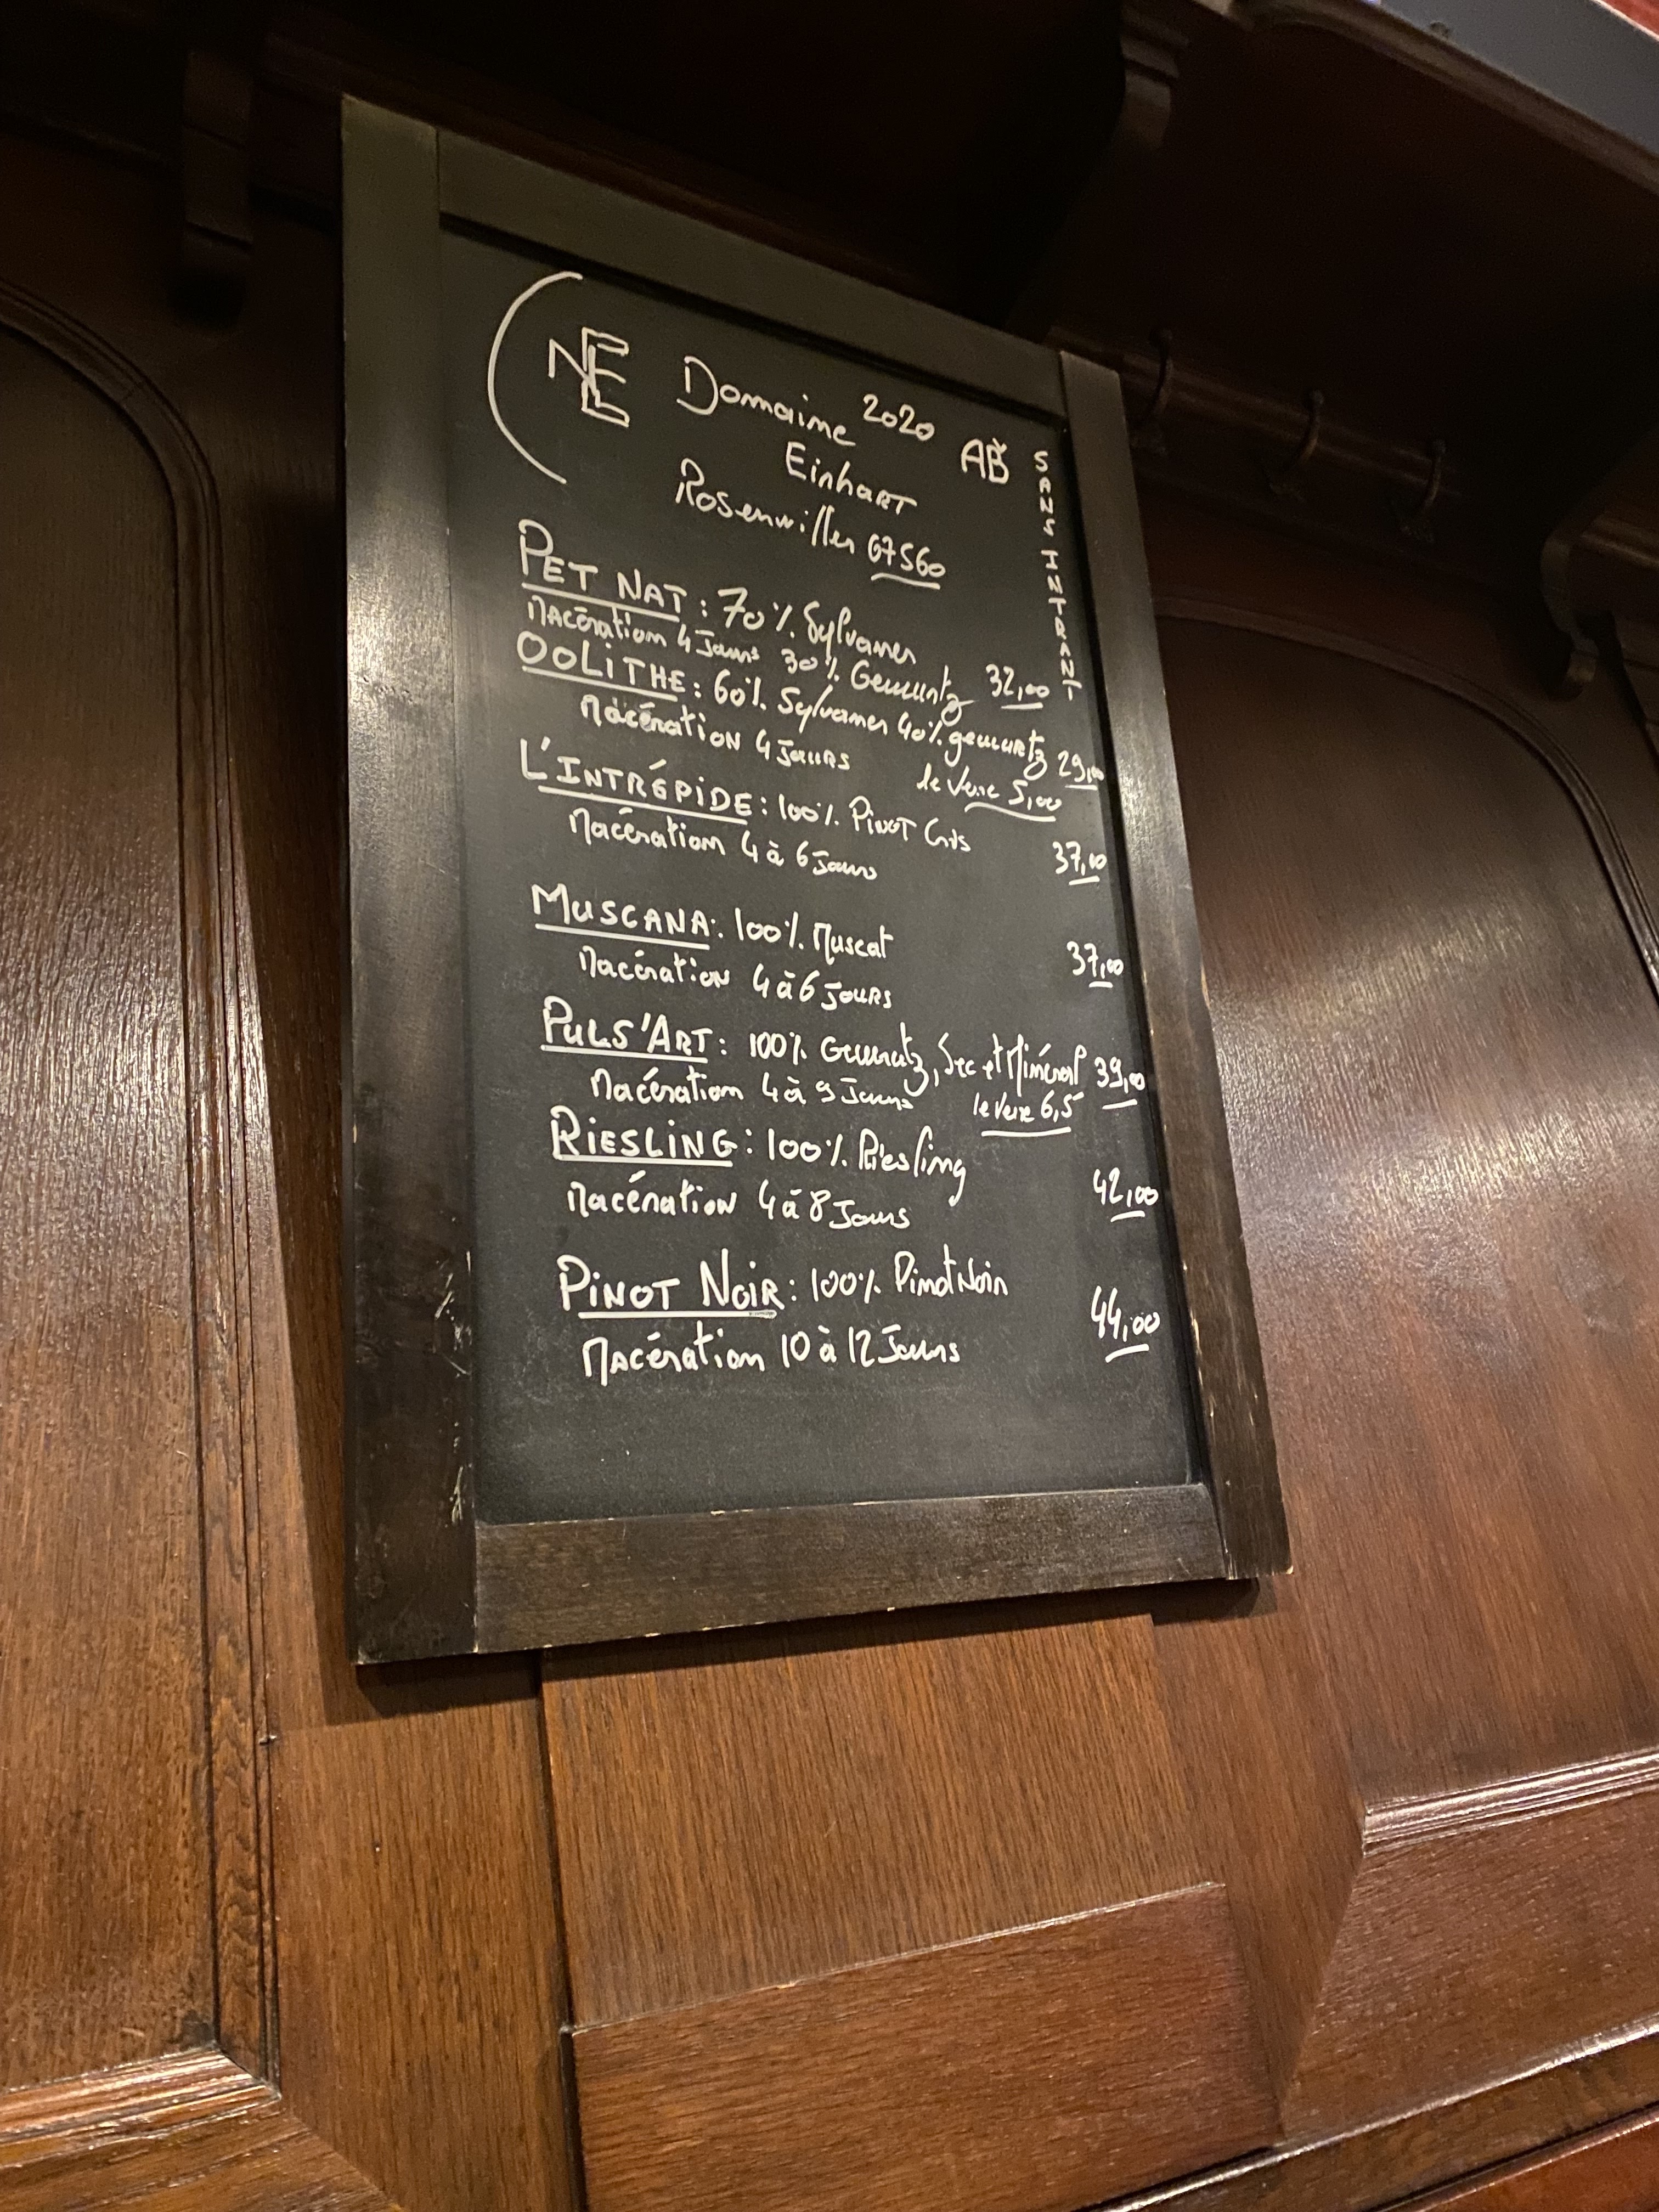 NE Domaine 2020 AB
Einhart
Rosenwiller 67560
SANS INTRANT
PET NAT : 70% Sylvaner
Macération 4 Jours 30% Gewurtz 32,00
OOLITHE : 60% Sylvaner 40% gewurtz 29,00
Macération 4 Jours le Verre 5,00
L'INTRÉPIDE : 100% Pinot Gris
Macération 4 à 6 Jours 37,00
MUSCANA : 100% Muscat
Macération 4 à 6 Jours 37,00
PULS'ART : 100% Gewurtz, Sec et Minéral 39,00
Macération 4 à 9 Jours le Verre 6,5
RIESLING : 100% Riesling
Macération 4 à 8 Jours 42,00
PINOT NOIR : 100% Pinot Noir
Macération 10 à 12 Jours 44,00